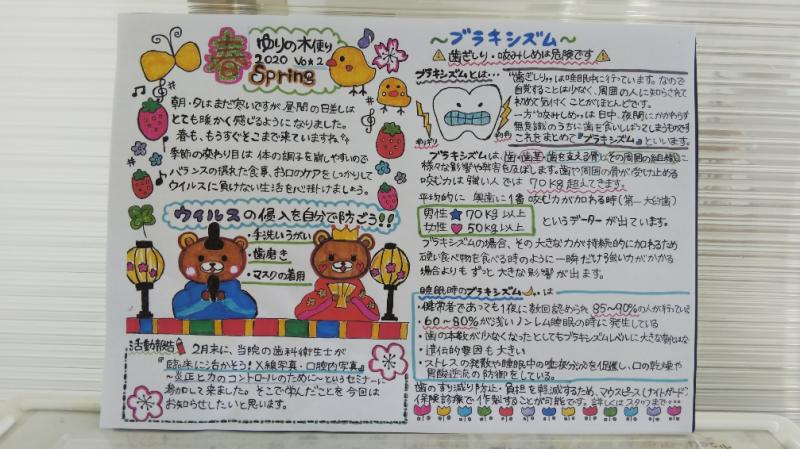 春
ゆりの木便り
2020 Vo★2
Spring
朝・夕はまだ寒いですが、昼間の日差しは
とても暖かく感じるようになりました。
春も、もうすぐそこまで来ていますね。
季節の変わり目は体の調子を崩しやすいので
バランスの摂れた食事、お口のケアをしっかりして
ウイルスに負けない生活を心掛けましょう。
ウイルスの侵入を自分で防ごう!!
・手洗いうがい
・歯磨き
・マスクの着用
活動報告
2月末に、当院の歯科衛生士が
臨床に活かそう!X線写真・口腔内写真
~炎症と力のコントロールのために~というセミナーに
参加して来ました。そこで学んだことを今回は
お知らせしたいと思います。
~ブラキシズム~
歯ぎしり・咬みしめは危険です
ブラキシズムとは・・・
"歯ぎしり"は睡眠中に行っています。なので
自覚することは少なく、周囲の人に知らされて
初めて気付くことがほとんどです。
一方"咬みしめ"は日中、夜間にかかわらず
無意識のうちに歯を食いしばってしまうものです
これをまとめて『ブラキシズム』といいます。
ブラキシズムは、歯・歯茎・歯を支える骨とその周囲の組織に
様々な影響や弊害を及ぼします。歯や周囲の骨が受け止める
咬む力は強い人では70kg超えてきます。
平均的に奥歯に1番咬む力が加わる時(第一大臼歯)
男性★70kg以上
女性♥50kg以上
というデーターが出ています。
ブラキシズムの場合、その大きな力が持続的に加わるため
硬い食べ物を食べる時のように一瞬だけ強い力がかかる
場合よりもずっと大きな影響が出ます。
睡眠時のブラキシズムは
・健常者であっても1夜に数回認められ85~90%の人が行っている
・60~80%が浅いノンレム睡眠の時に発生している
・歯の本数が少なくなったとしてもブラキシズムレベルに大きな変化はない
・遺伝的要因も大きい
・ストレスの発散や睡眠中の唾液分泌を促進し、口の乾燥や
胃酸逆流の防御をしている。
歯のすり減り防止・負担を軽減するため、マウスピース(ナイトガード)
保険診療で作製することが可能です。詳しくはスタッフまで・・・